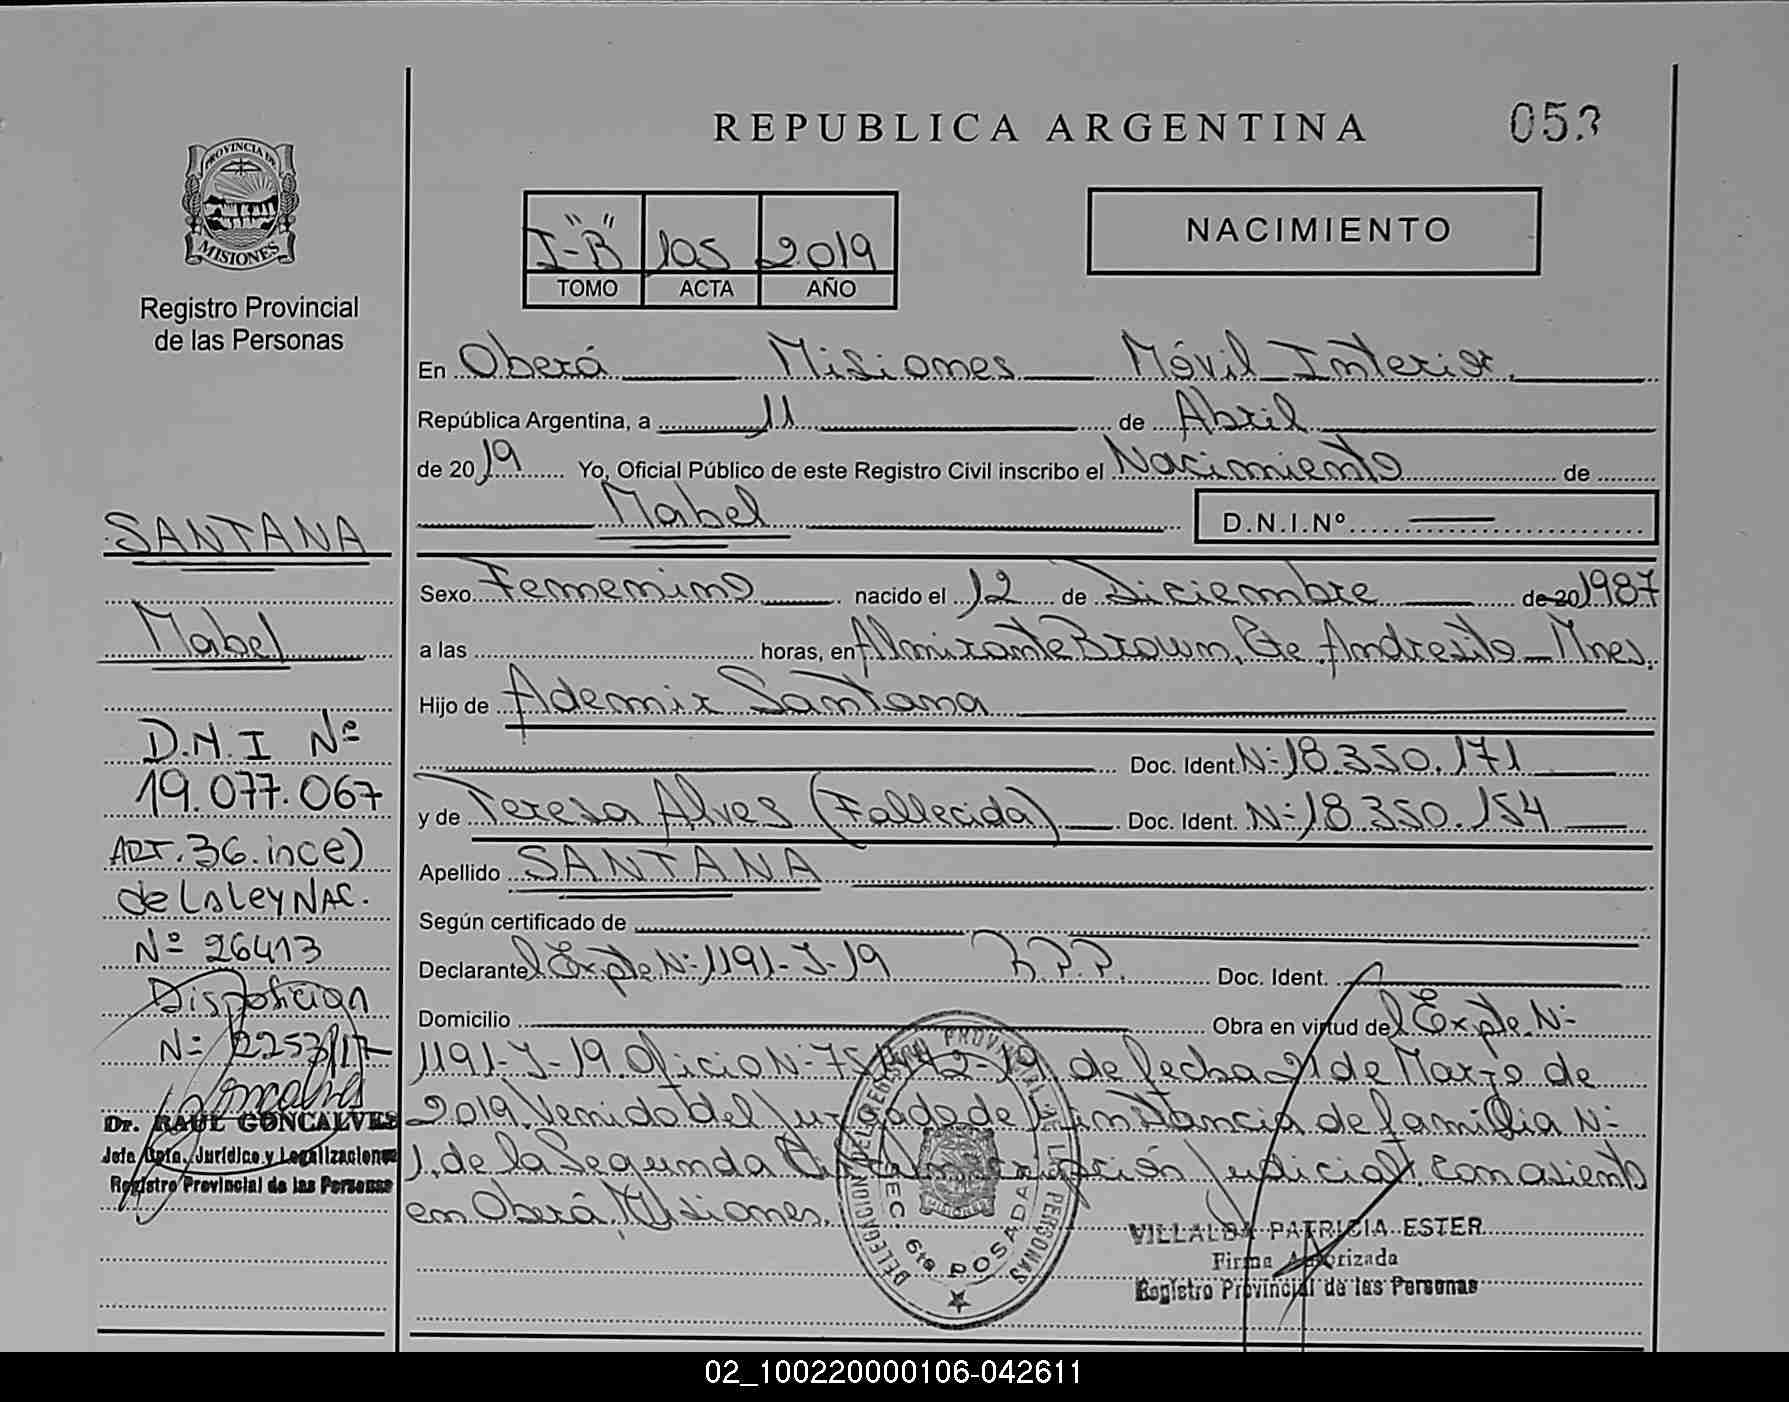 REPUBLICA ARGENTINA
053
PROVINCIA DE
MISIONES
Registro Provincial
de las Personas
I-"B" 105 2019
TOMO ACTA AÑO
NACIMIENTO
En Oberá Misiones Móvil Interior.
República Argentina, a 11 de Abril
de 2019 Yo, Oficial Público de este Registro Civil inscribo el Nacimiento de
Mabel
D.N.I.Nº
Sexo Femenino nacido el 12 de Diciembre de 20 1987
a las horas, en Almirante Brown, Cte. Andresito - Mnes.
Hijo de Ademir Santana
Doc. Ident. N-18.350.171
y de Teresa Alves (Fallecida) Doc. Ident. N-18.350.154
Apellido SANTANA
Según certificado de
Declarante el Expte N-1191-J-19 R.P.P. Doc. Ident.
Domicilio Obra en virtud del Expte. N-
1191-J-19. Oficio N- de fecha 21 de Marzo de
2019. Venido del Juzgado de Instancia de familia N-
1, de la Segunda Circunscripción Judicial, con asiento
en Oberá, Misiones.
SANTANA
Mabel
D.N.I Nº
19.077.067
ART. 36. inc e)
de La Ley NAC.
Nº 26413
Disposicion
N- 2253/17
Dr. RAUL GONCALVES
Jefe Dpto. Jurídico y Legalizaciones
Registro Provincial de las Personas
DELEGACION DEL REGISTRO PROVINCIAL DE LAS PERSONAS
SEC. 6ta POSADAS
VILLALBA PATRICIA ESTER
Firma Autorizada
Registro Provincial de las Personas
02_100220000106-042611